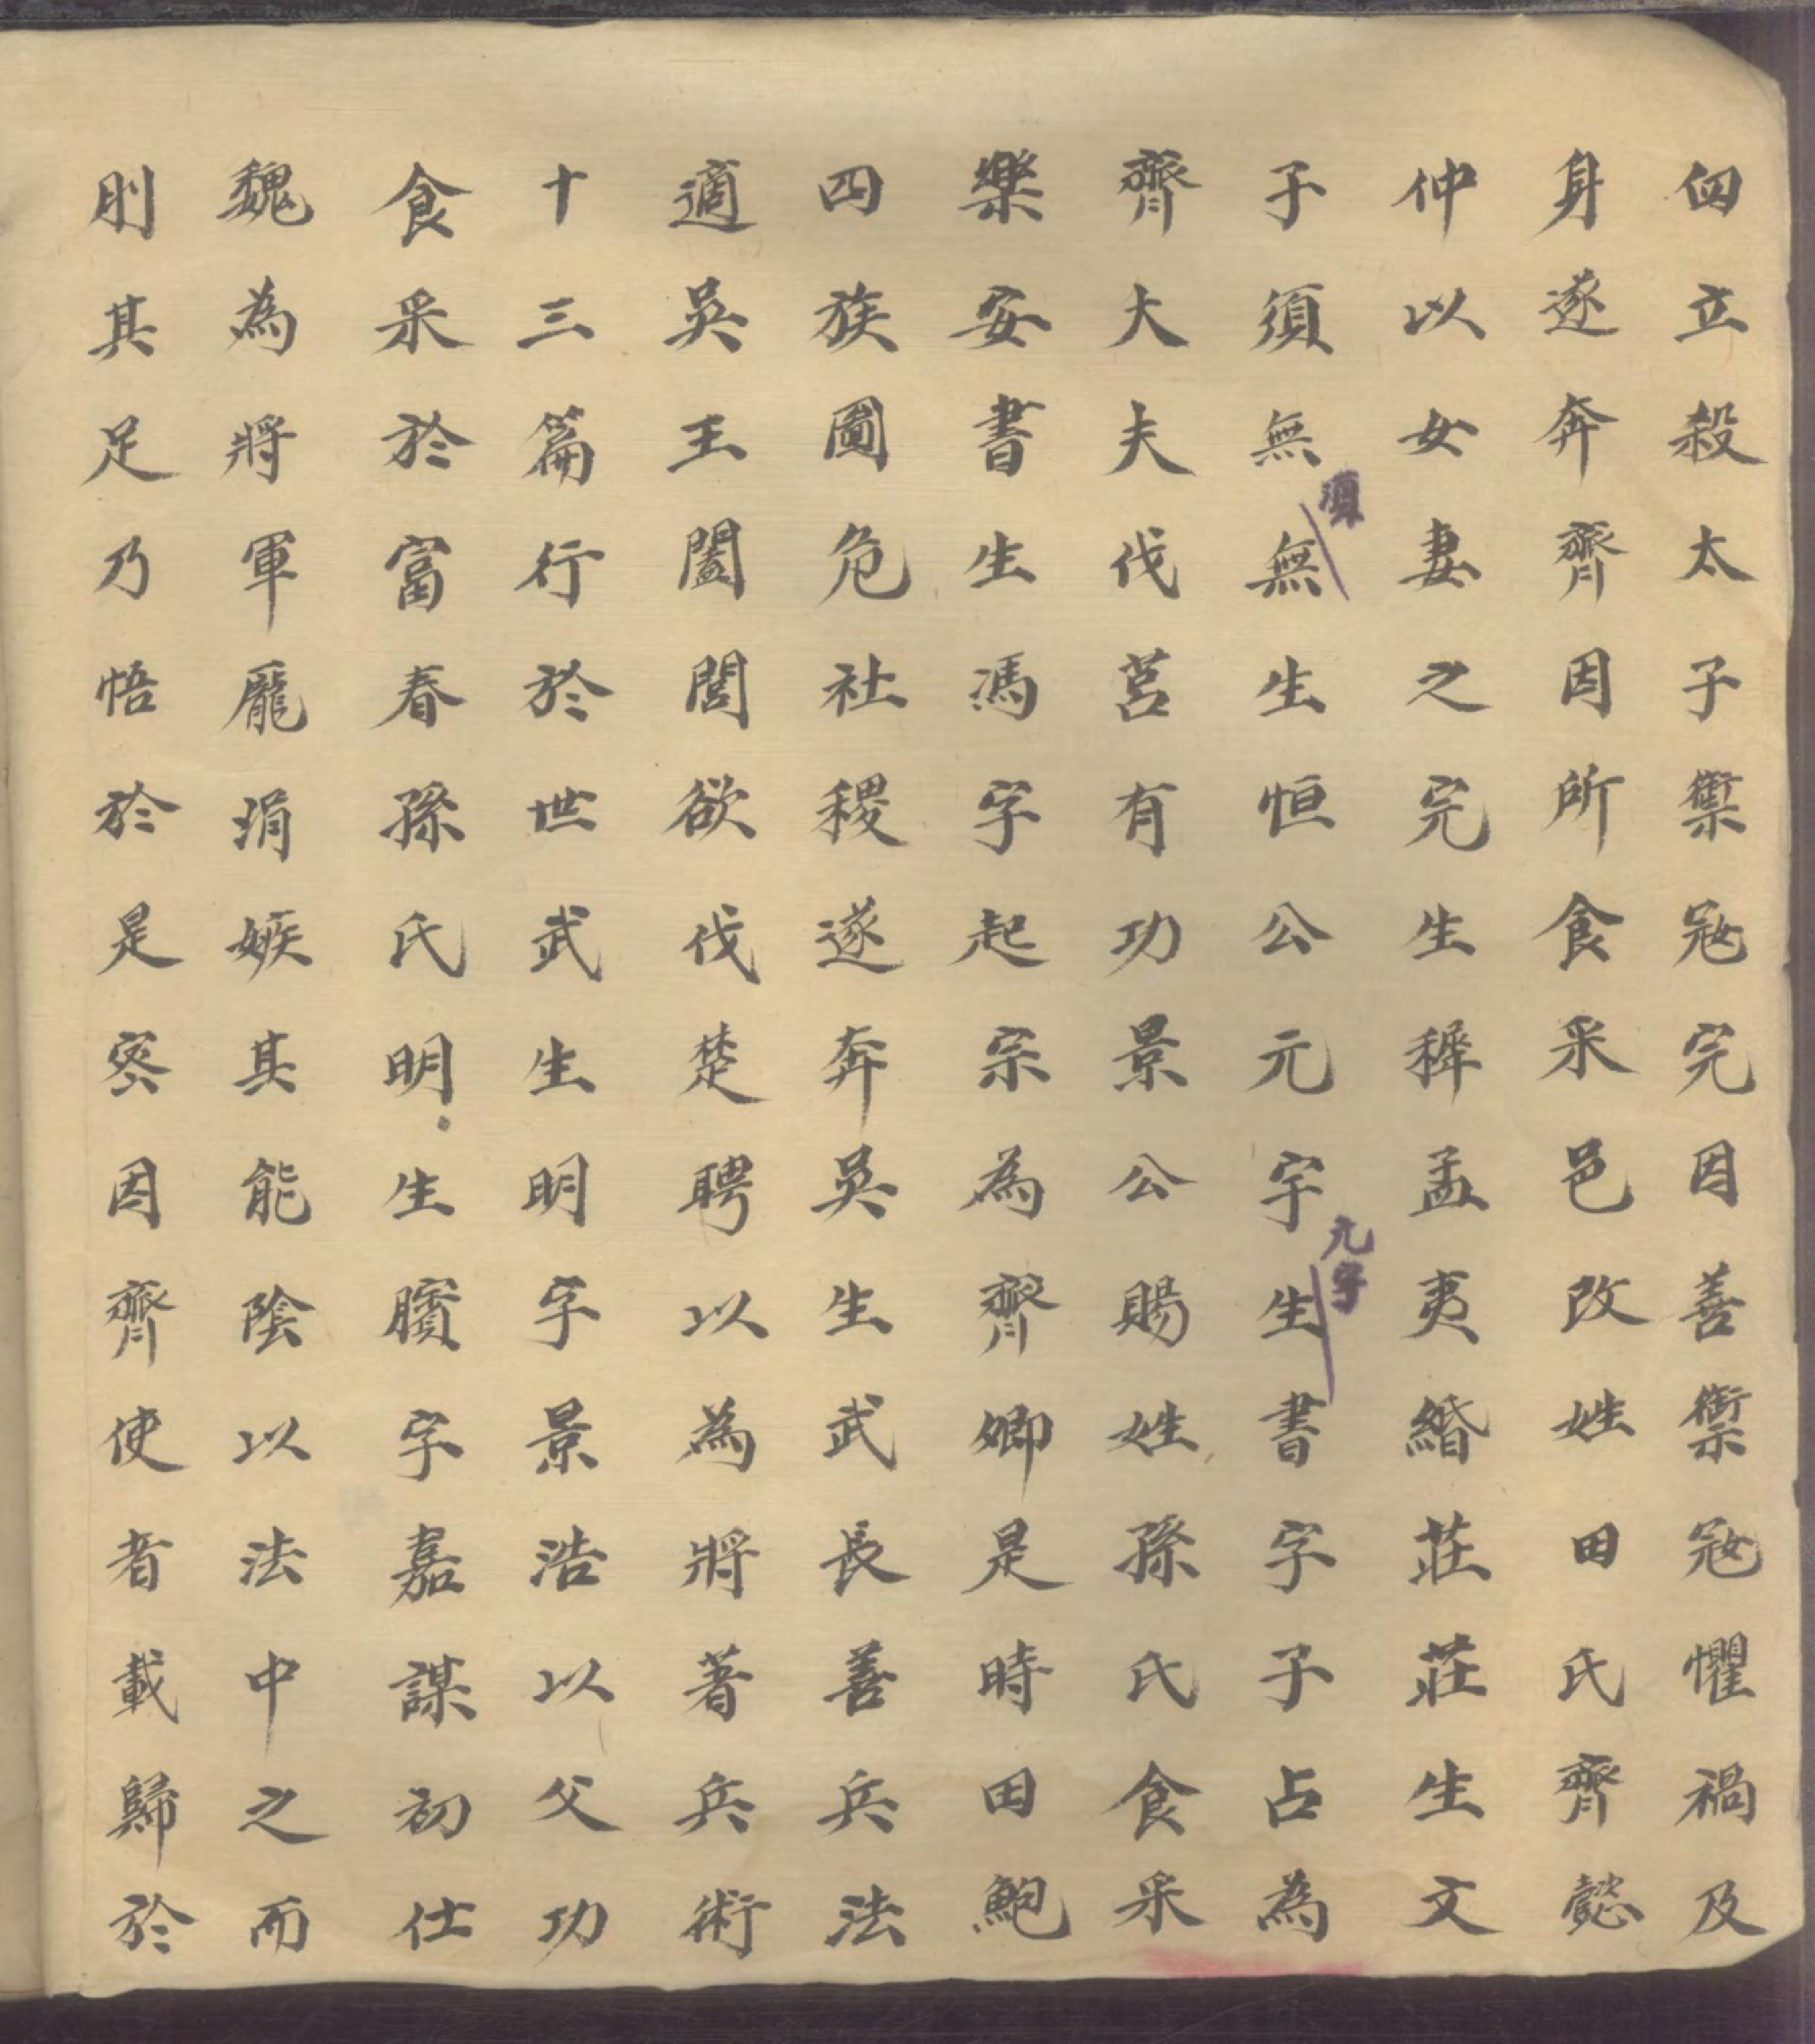 四立殺太子禦冦完因善禦冦懼禍及
身遂奔齊因所食采邑改姓田氏齊懿
仲以女妻之完生穉孟夷緡莊莊生文
子須無無生恒公元宇生書字子占為
須
元字
齊大夫伐莒有功景公賜姓孫氏食采
樂安書生馮字起宗為齊卿是時田鮑
四族圖危社稷遂奔吳生武長善兵法
適吳王闔閭欲伐楚聘以為將著兵術
十三篇行於世武生明字景浩以父功
食采於富春孫氏明生臏字嘉謀初仕
魏為將軍龎涓嫉其能陰以法中之而
刖其足乃悟於是密因齊使者載歸於